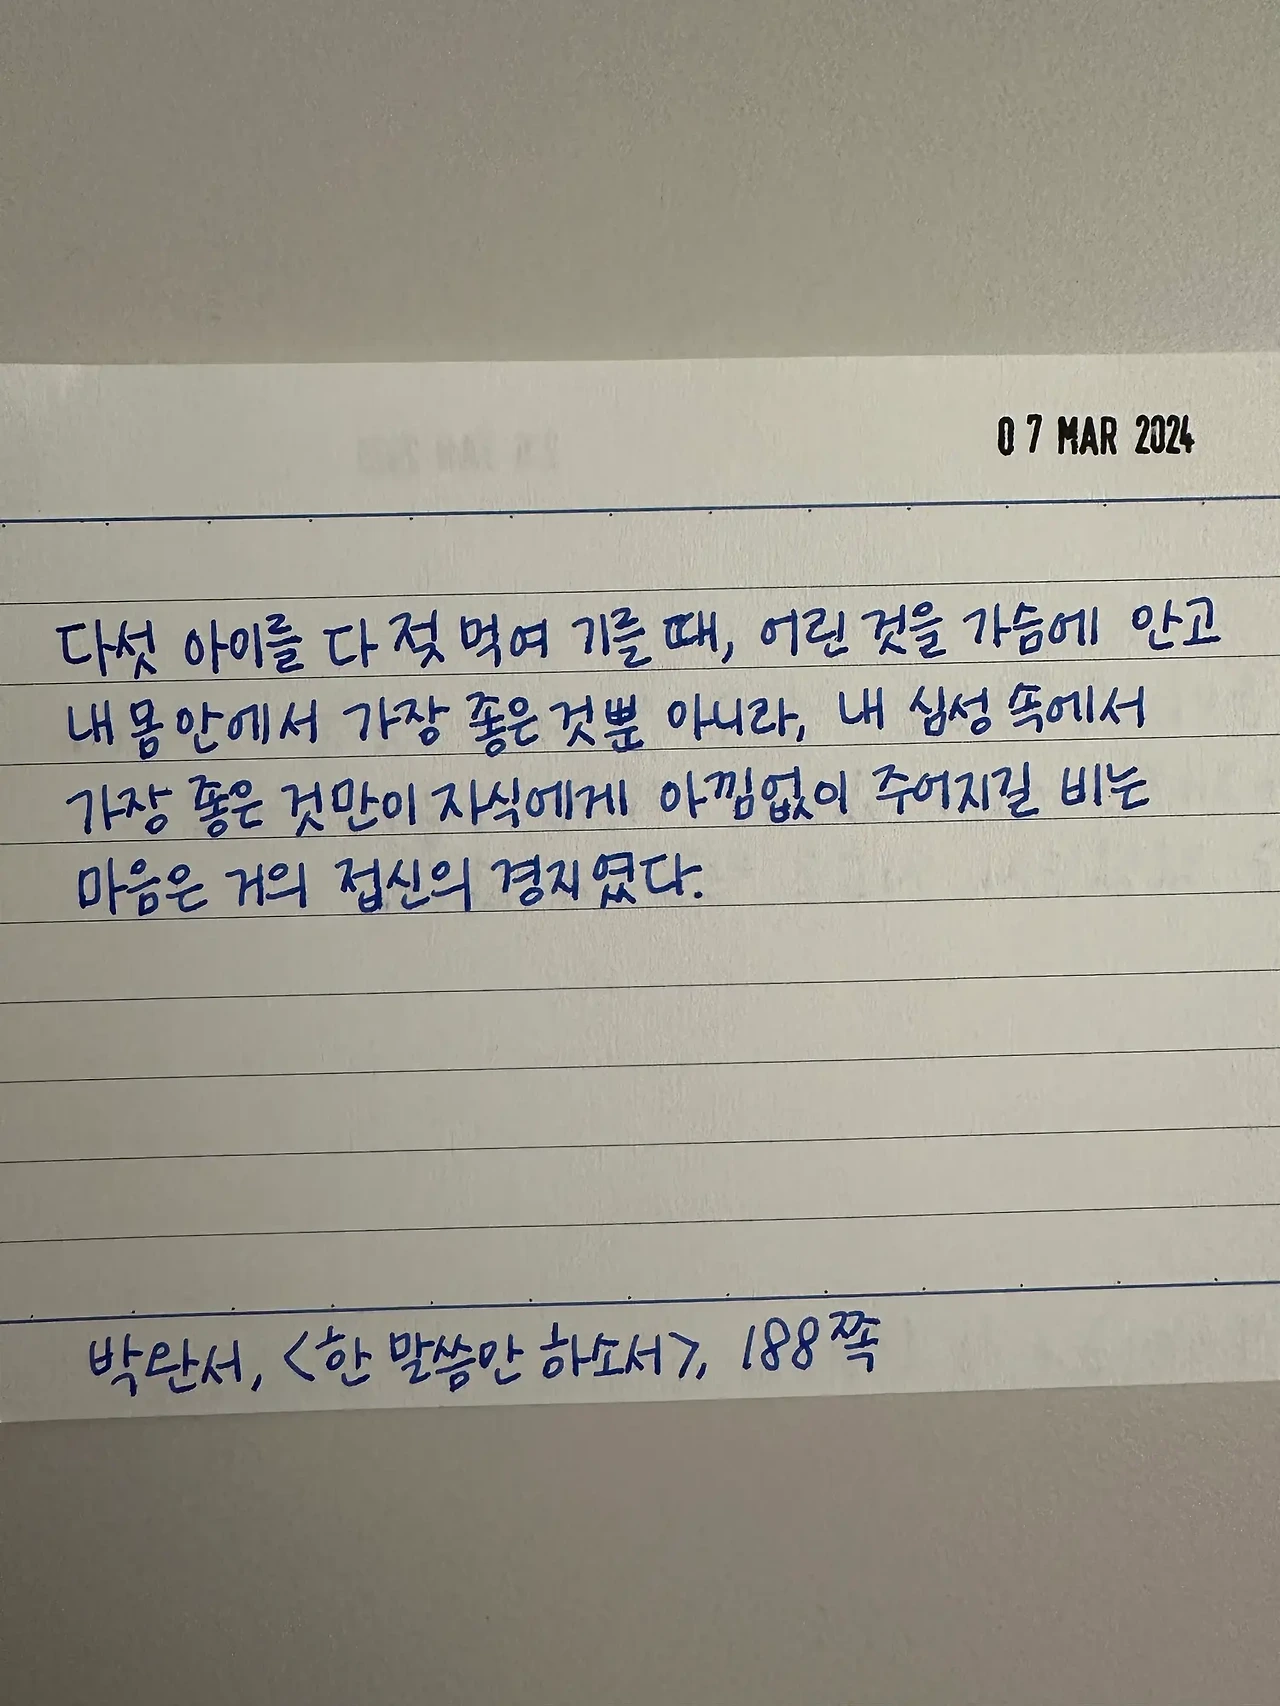 07 MAR 2024
다섯 아이를 다 젖 먹여 기를 때, 어린 것을 가슴에 안고
내 몸 안에서 가장 좋은 것뿐 아니라, 내 심성 속에서
가장 좋은 것만이 자식에게 아낌없이 주어지길 비는
마음은 거의 접신의 경지였다.
박완서, <한 말씀만 하소서>, 188쪽